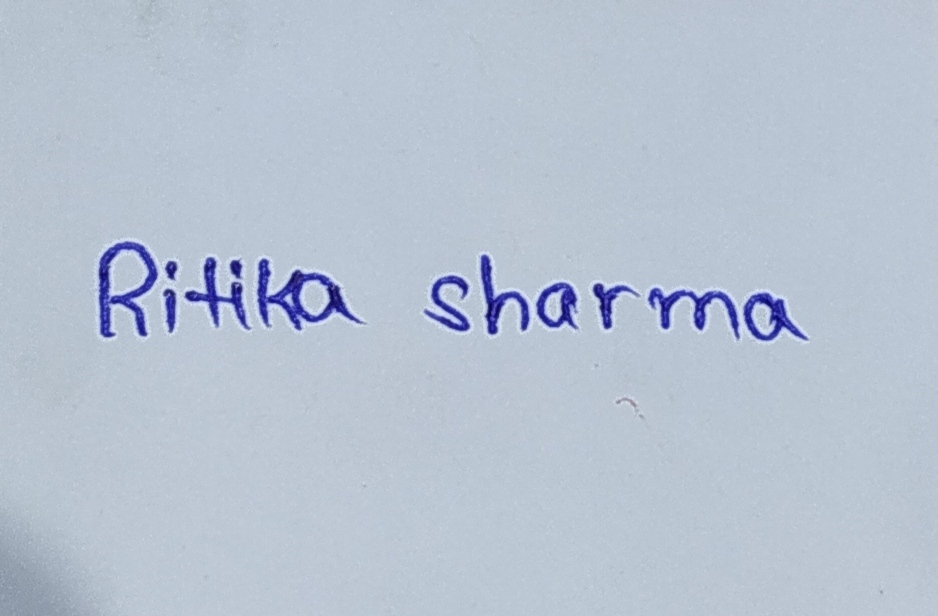 Ritika sharma